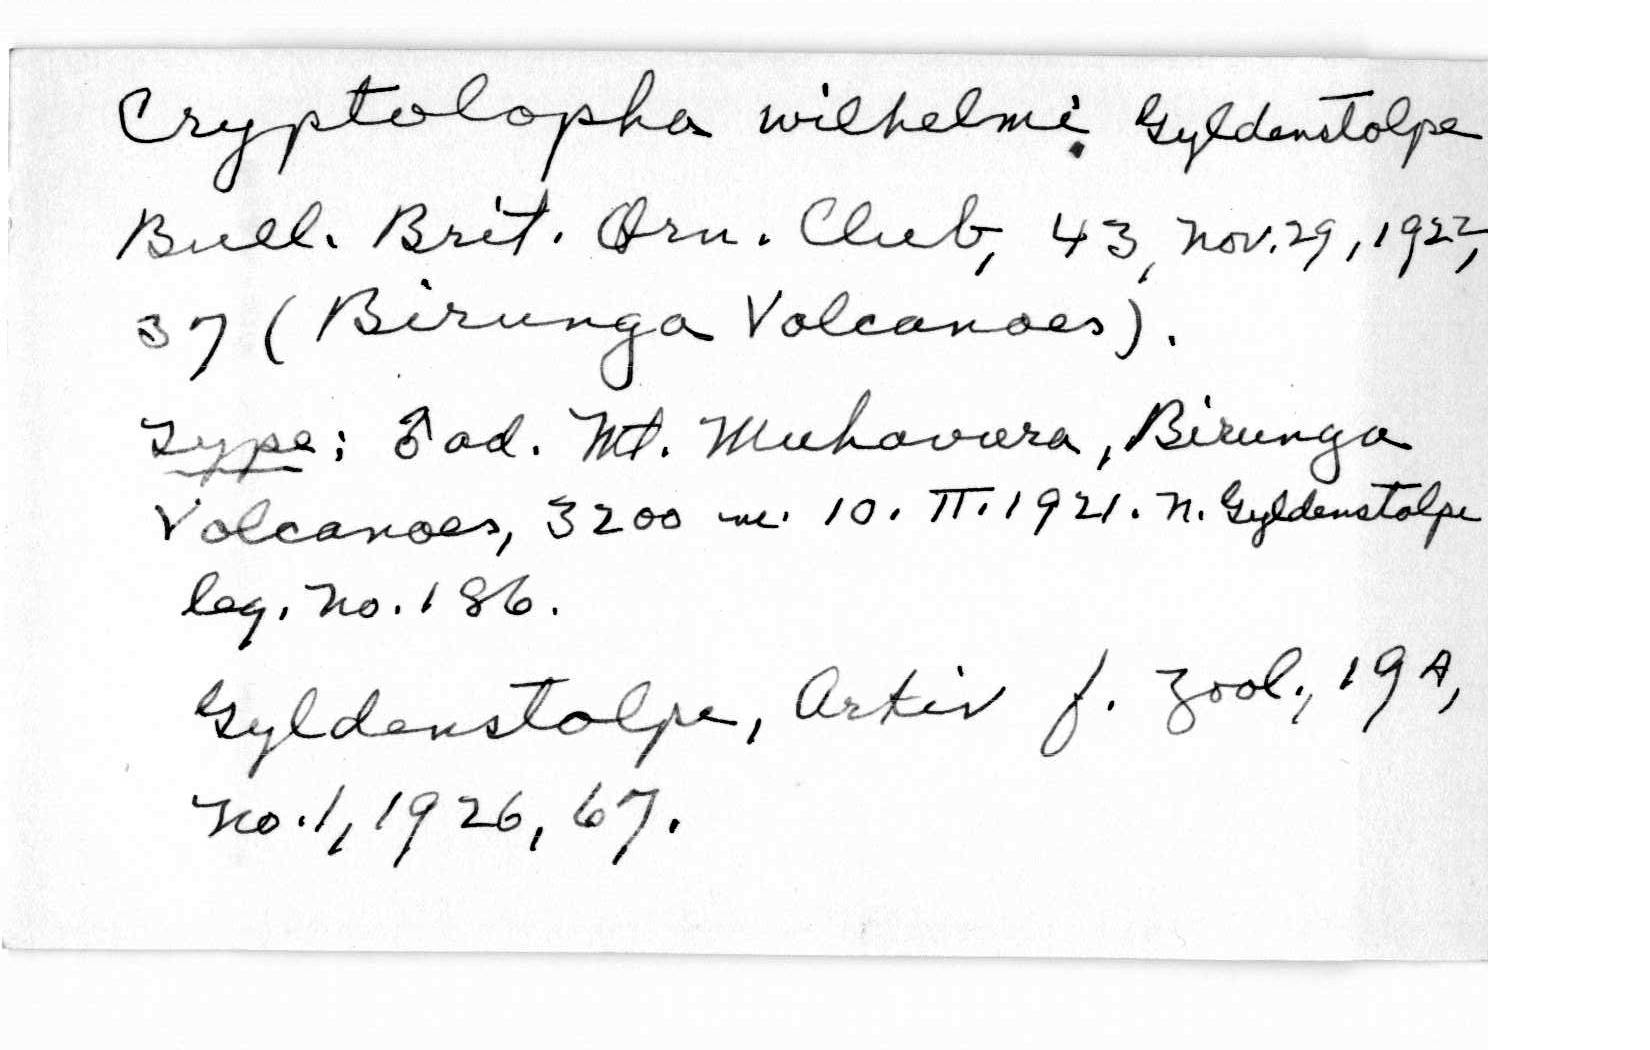 Cryptolopha wilhelmi Gyldenstolpe
Bull. Brit. Orn. Club, 43, Nov. 29, 1922,
37 (Birunga Volcanoes).
Type; ♂ ad. Mt. Muhavura, Birunga
Volcanoes, 3200 m. 10. II. 1921. N. Gyldenstolpe
leg. No. 186.
Gyldenstolpe, Arkiv f. Zool., 19A,
No. 1, 1926, 67.